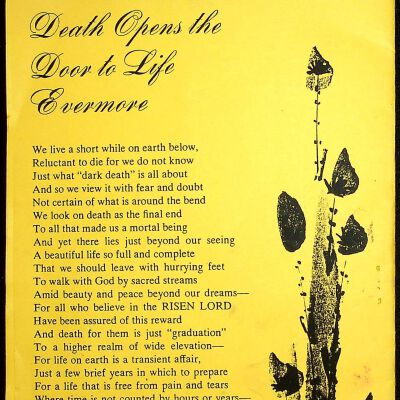 Death Opens the
Door to Life
Evermore
We live a short while on earth below,
Reluctant to die for we do not know
Just what “dark death” is all about
And so we view it with fear and doubt
Not certain of what is around the bend
We look on death as the final end
To all that made us a mortal being
And yet there lies just beyond our seeing
A beautiful life so full and complete
That we should leave with hurrying feet
To walk with God by sacred streams
Amid beauty and peace beyond our dreams—
For all who believe in the RISEN LORD
Have been assured of this reward
And death for them is just “graduation”
To a higher realm of wide elevation—
For life on earth is a transient affair,
Just a few brief years in which to prepare
For a life that is free from pain and tears
Where time is not counted by hours or years—